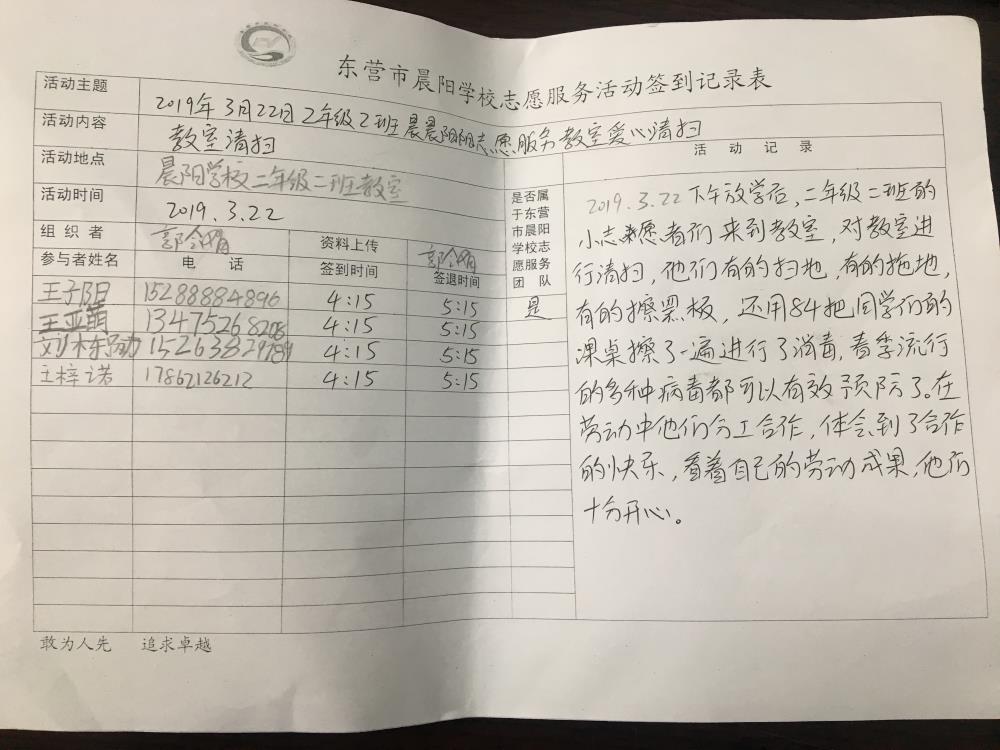 东营市晨阳学校志愿服务活动签到记录表
活动主题 2019年3月22日2年级2班晨晨阳阳志愿服务教室爱心清扫
活动内容 教室清扫
活动地点 晨阳学校二年级二班教室
活动时间 2019.3.22
组织者 资料上传
参与者姓名 电话 签到时间 签退时间
是否属
于东营
市晨阳
学校志
愿服务
团队
王子阳 15288884896 4:15 5:15 是
王亚萌 13475268208 4:15 5:15
刘栋勋 4:15 5:15
王梓诺 17862126212 4:15 5:15
活动记录
2019.3.22下午放学后,二年级二班的
小志愿者们来到教室,对教室进
行清扫,他们有的扫地,有的拖地,
有的擦黑板,还用84把同学们的
课桌擦了一遍进行了消毒,春季流行
的多种病毒都可以有效预防了。在
劳动中他们分工合作,体会到了合作
的快乐,看着自己的劳动成果,他们
十分开心。
敢为人先 追求卓越